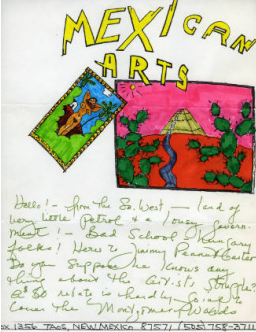 MEXICAN
ARTS
Hello! - from the So. West - land of
very little petrol & a lousy govern-
ment! - Bad School
folks! Here is Jimmy Peanut Carter
Do you Suppose he knows any
thing about the artist's Struggle?
is hardly going to
cover the Montgomery Wards
1356 TAOS, NEW MEXICO 87571 (505) 758-3711